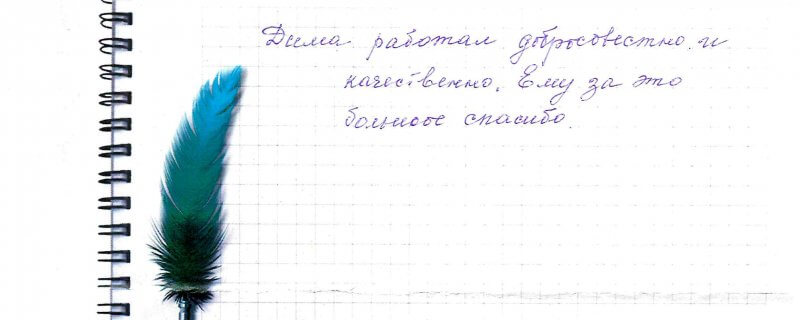 Дима работал добросовестно и
качественно. Ему за это
большое спасибо.